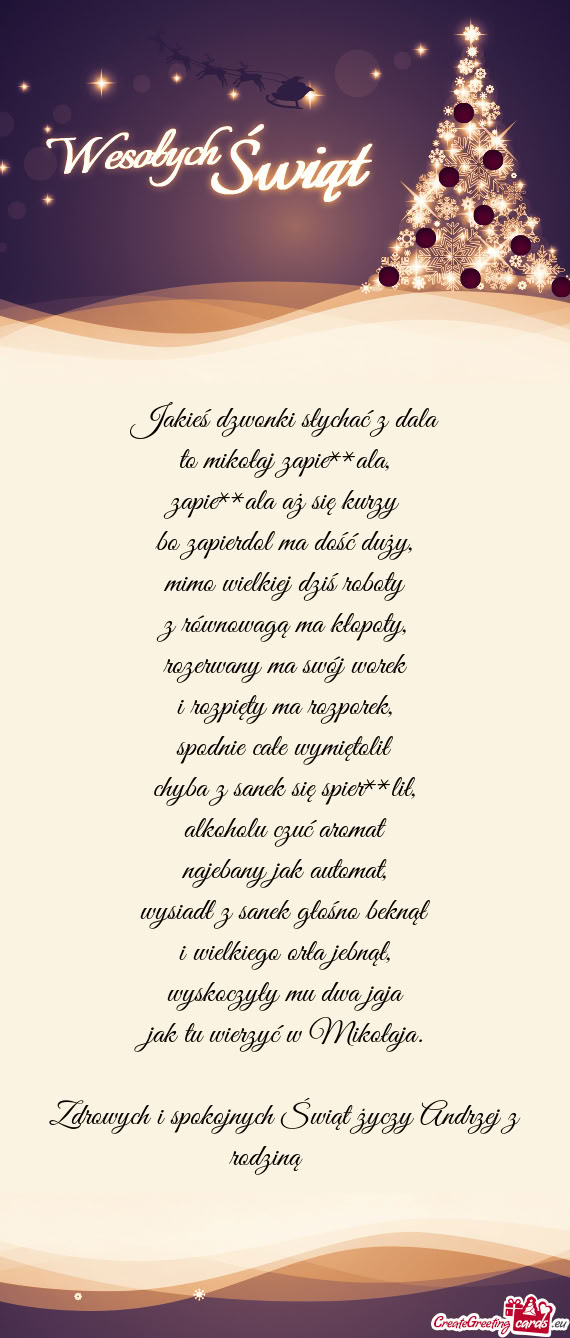 Wesołych Świąt
Jakieś dzwonki słychać z dala
to mikołaj zapie**ala,
zapie**ala aż się kurzy
bo zapierdol ma dość duży,
mimo wielkiej dziś roboty
z równowagą ma kłopoty,
rozerwany ma swój worek
i rozpięty ma rozporek,
spodnie całe wymiętolił
chyba z sanek się spier**lił,
alkoholu czuć aromat
najebany jak automat,
wysiadł z sanek głośno beknął
i wielkiego orła jebnął,
wyskoczyły mu dwa jaja
jak tu wierzyć w Mikołaja.
Zdrowych i spokojnych Świąt życzy Andrzej z
rodziną
CreateGreetingcards.eu